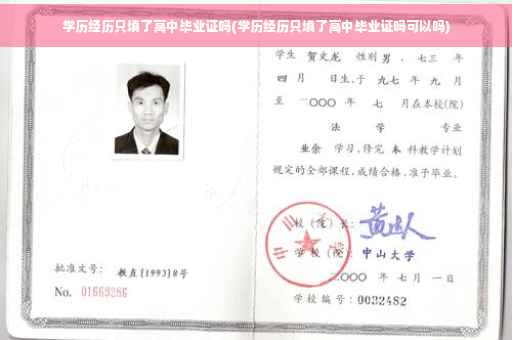 学历经历只填了高中毕业证吗(学历经历只填了高中毕业证吗可以吗)
学生 贺文龙 性别 男，七三 年
四 月 日生,于 九七 年 九 月
至 二〇〇〇 年 七 月在本校(院)
法 学 专业
业余 学习,修完 本 科教学计划
规定的全部课程,成绩合格,准予毕业。
校(院)长:
学校(院): 中山大学
二〇〇〇 年 七 月 一 日
批准文号: 教直[1993]8号
No. 01669286
学校编号: 0032482